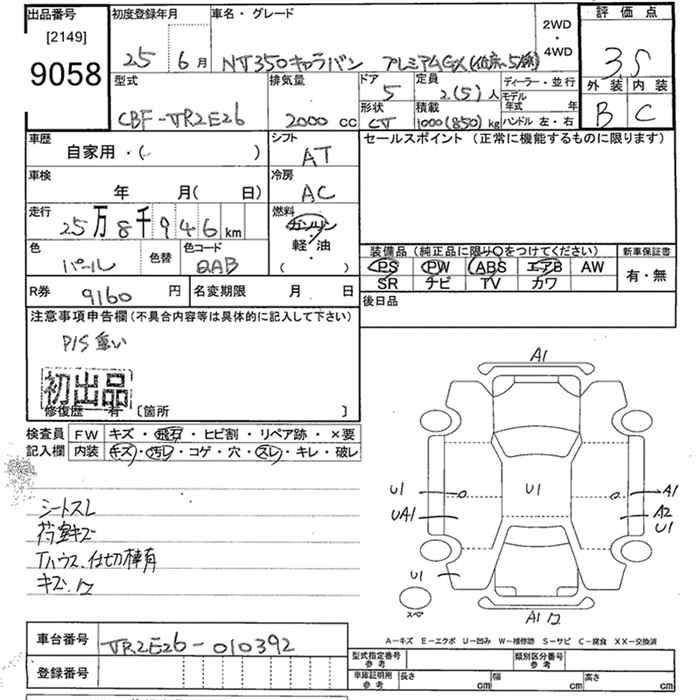 出品番号
[2149]
9058
初度登録年月
25 6 月
車名・グレード
NV350キャラバン プレミアムGX(低床・5ドア)
2WD
・
4WD
評価点
3.5
外装 内装
B C
型式
CBF-VR2E26
排気量
2000 cc
ドア
5
形状
CV
定員
2(5) 人
積載
1000(850) kg
ディーラー・並行
モデル
年式 年
ハンドル 左・右
車歴
自家用・( )
シフト
AT
セールスポイント(正常に機能するものに限ります)
車検
年 月( 日)
冷房
AC
走行
25万8千946 km
燃料
ガソリン
・
軽・油
・
( )
色
パール
色替
色コード
QAB
装備品(純正品に限り○をつけてください)
PS PW ABS エアB AW
SR ナビ TV カワ
新車保証書
有・無
R券
9160 円
名変期限 月 日
後日品
注意事項申告欄(不具合内容等は具体的に記入して下さい)
P/S重い
初出品
修復歴 有 [箇所 ]
検査員
記入欄
FW キズ・飛石・ヒビ割・リペア跡・×要
内装 キズ・汚レ・コゲ・穴・スレ・キレ・破レ
シートスレ
荷室キズ
Tハウス、仕切棒有
キズ、ワ
A1
U1
U1
UA1
U1
A1
A2
U1
スペア
A1ワ
A-キズ E-エクボ U-凹み W-補修跡 S-サビ C-腐食 XX-交換済
車台番号
VR2E26-010392
登録番号
型式指定番号
参考
類別区分番号
参考
車庫証明用
参考
長さ cm 幅 cm 高さ cm